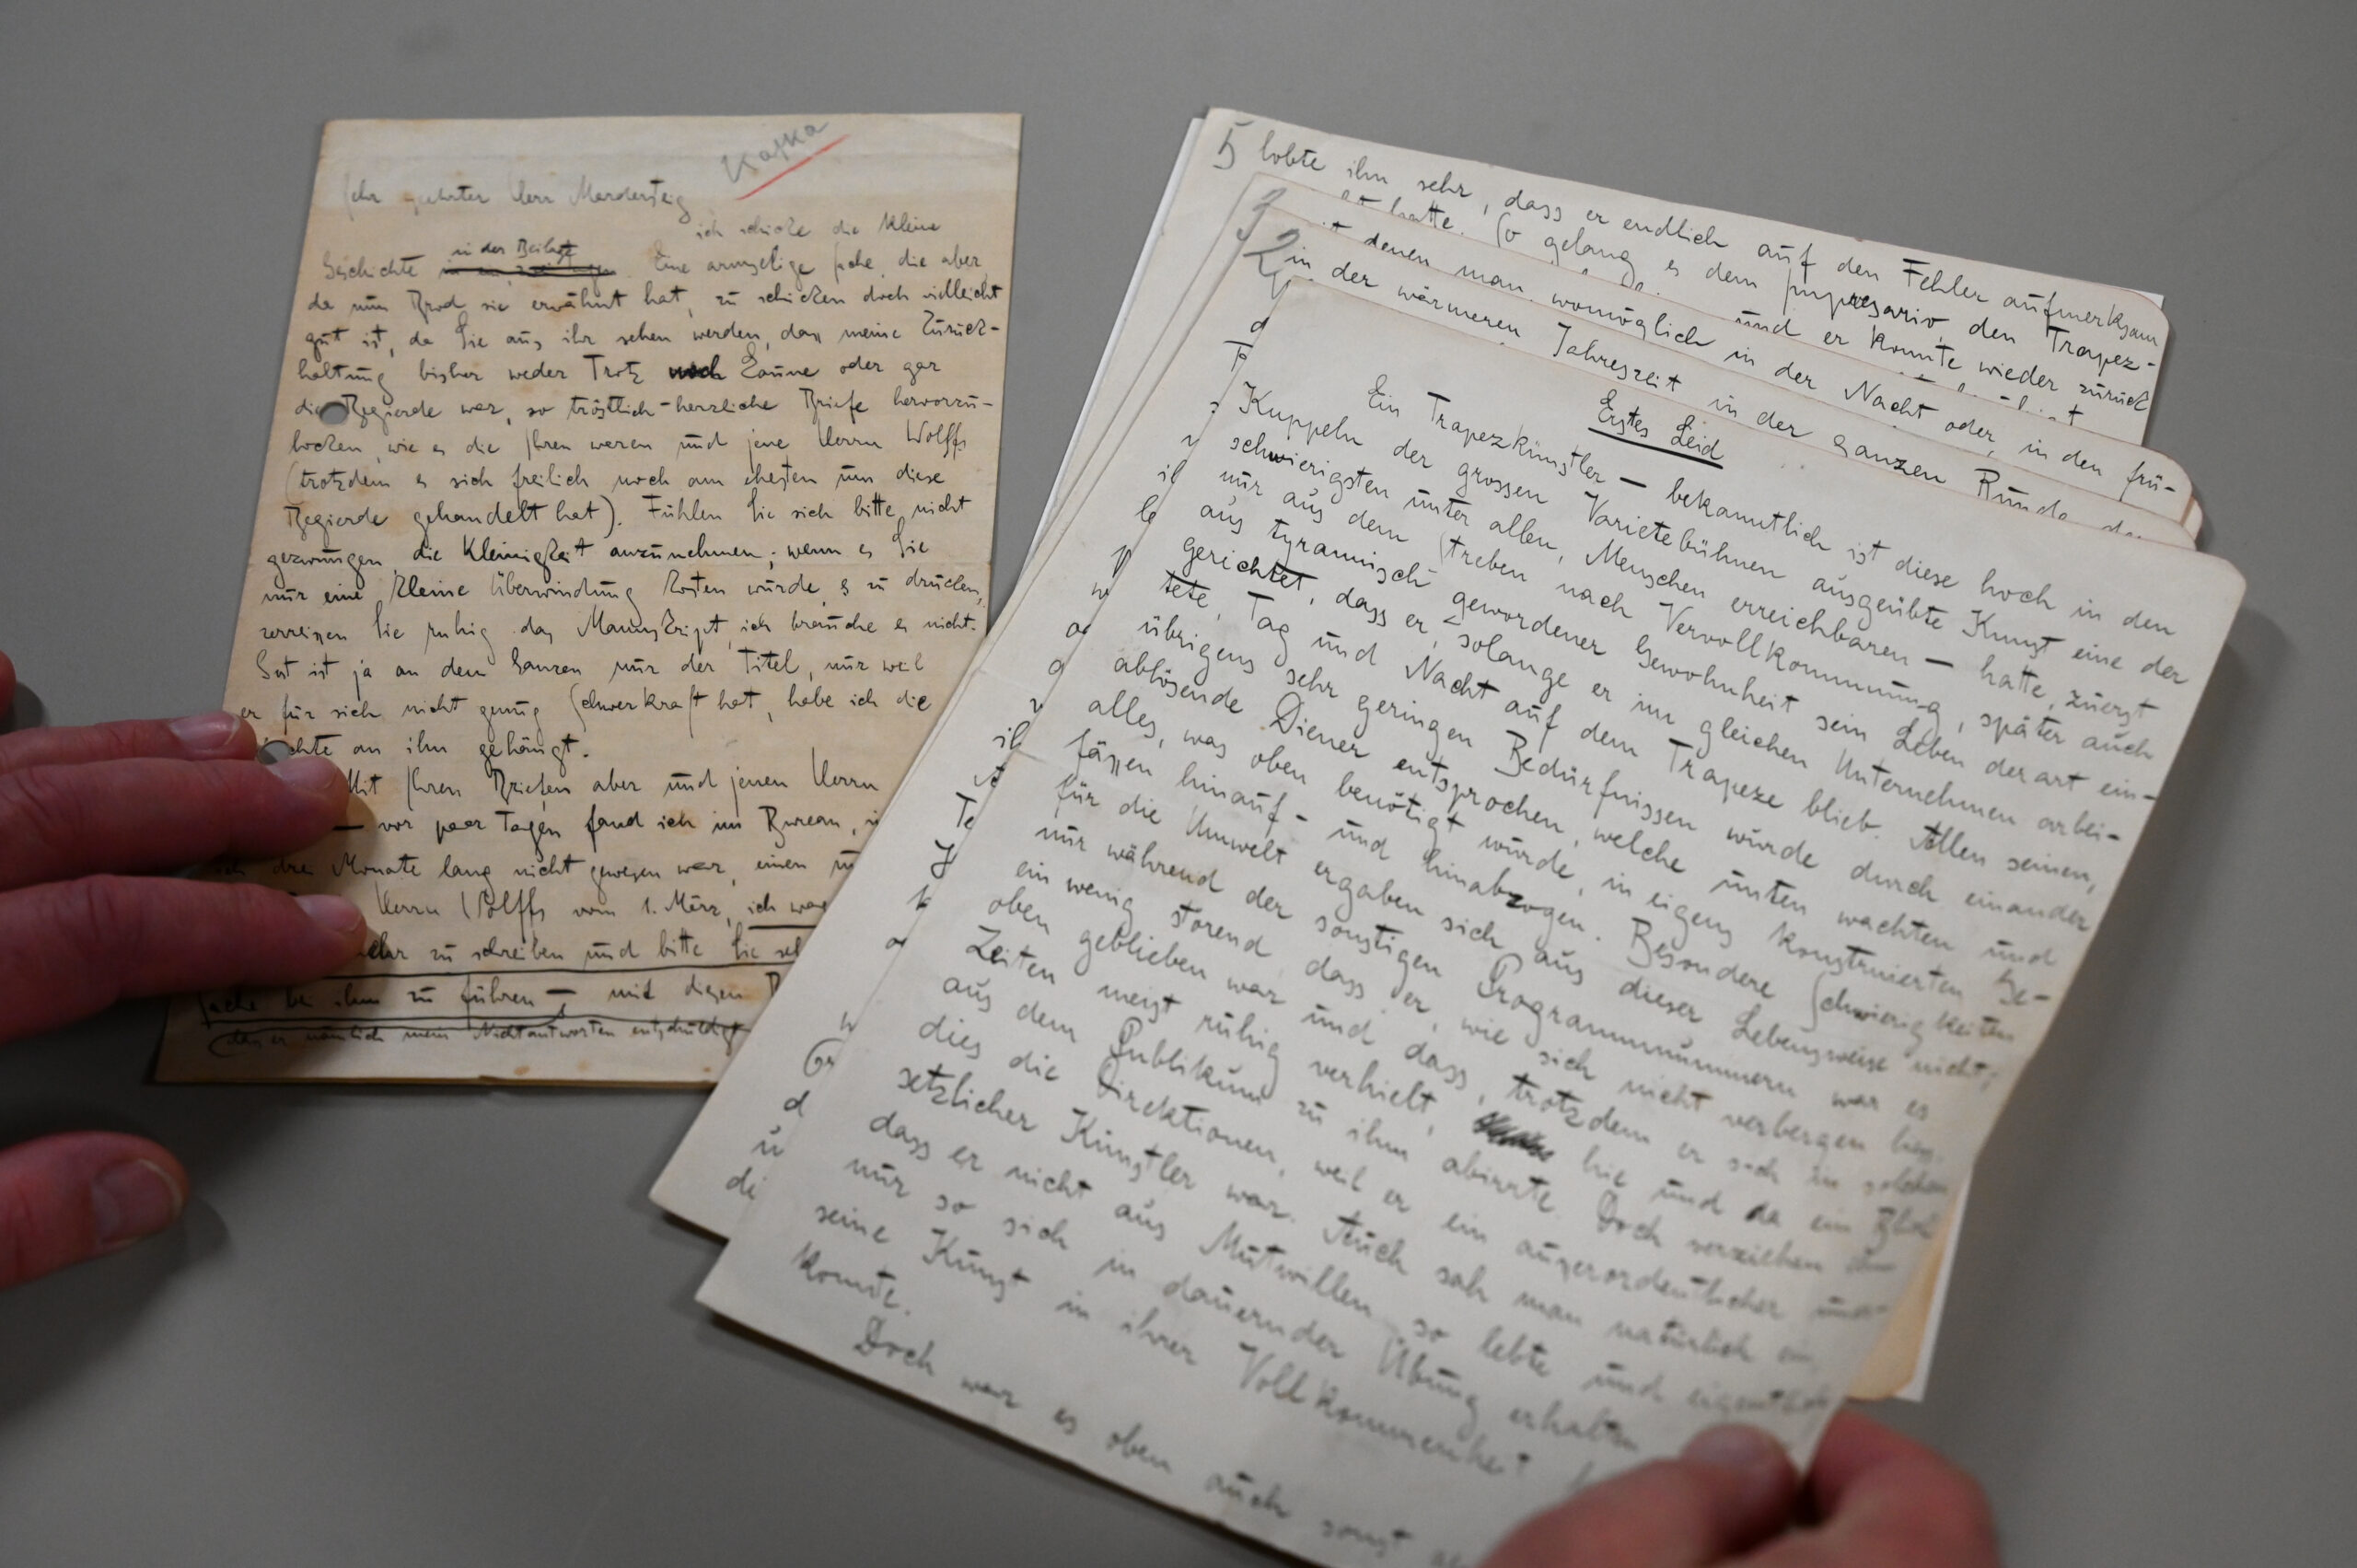 Kafka
Sehr geehrter Herr Mardersteig
ich schicke die kleine
in der Beilage
Geschichte. Eine armselige Sache, die aber
da nun Brod sie erwähnt hat, zu schicken doch vielleicht
gut ist, da Sie aus ihr sehen werden, dass meine Zurück-
haltung bisher weder Trotz noch Laune oder gar
die Begierde war, so tröstlich-herzliche Briefe hervorzu-
locken, wie es die Ihren waren und jene Herrn Wolffs
(trotzdem es sich freilich noch am ehesten um diese
Begierde gehandelt hat). Fühlen Sie sich bitte nicht
gezwungen die Kleinigkeit anzunehmen; wenn es Sie
nur eine kleine Überwindung kosten würde, es zu drucken,
zerreissen Sie ruhig das Manuskript, ich brauche es nicht.
Gut ist ja an dem Ganzen nur der Titel, nur weil
er für sich nicht genug Schwerkraft hat, habe ich die
chte an ihn gehängt.
Mit Ihren Briefen aber und jenen Herrn
— vor paar Tagen fand ich im Bureau,
ich drei Monate lang nicht gewesen war, einen
Herrn Wolffs vom 1. März, ich
mehr zu schreiben und bitte Sie
Sache bei ihm zu führen — mit diesen
(dass er nämlich mein Nichtantworten entschuldigt
5 lobte ihn sehr, dass er endlich auf den Fehler aufmerksam
hatte. So gelang es dem Impresario, den Trapez-
und er konnte wieder zurück
3
denen man womöglich in der Nacht oder, in den frü-
2 in der wärmeren Jahreszeit in der ganzen Runde
Erstes Leid
Ein Trapezkünstler — bekanntlich ist diese hoch in den
Kuppeln der grossen Varietebühnen ausgeübte Kunst eine der
schwierigsten unter allen, Menschen erreichbaren — hatte, zuerst
nur aus dem Streben nach Vervollkommnung, später auch
aus tyrannisch gewordener Gewohnheit sein Leben derart ein-
gerichtet, dass er, solange er im gleichen Unternehmen arbei-
tete, Tag und Nacht auf dem Trapeze blieb. Allen seinen,
übrigens sehr geringen Bedürfnissen wurde durch einander
ablösende Diener entsprochen, welche unten wachten und
alles, was oben benötigt wurde, in eigens konstruierten Ge-
fässen hinauf- und hinabzogen. Besondere Schwierigkeiten
für die Umwelt ergaben sich aus dieser Lebensweise nicht;
nur während der sonstigen Programmnummern war es
ein wenig störend dass er, wie sich nicht verbergen liess,
oben geblieben war und dass, trotzdem er sich in solchen
Zeiten meist ruhig verhielt, hie und da ein Blick
aus dem Publikum zu ihm abirrte. Doch verziehen ihm
dies die Direktionen, weil er ein ausserordentlicher uner-
setzlicher Künstler war. Auch sah man natürlich ein,
dass er nicht aus Mutwillen so lebte und eigentlich
nur so sich in dauernder Übung erhalten
seine Kunst in ihrer Vollkommenheit
konnte.
Doch war es oben auch sonst